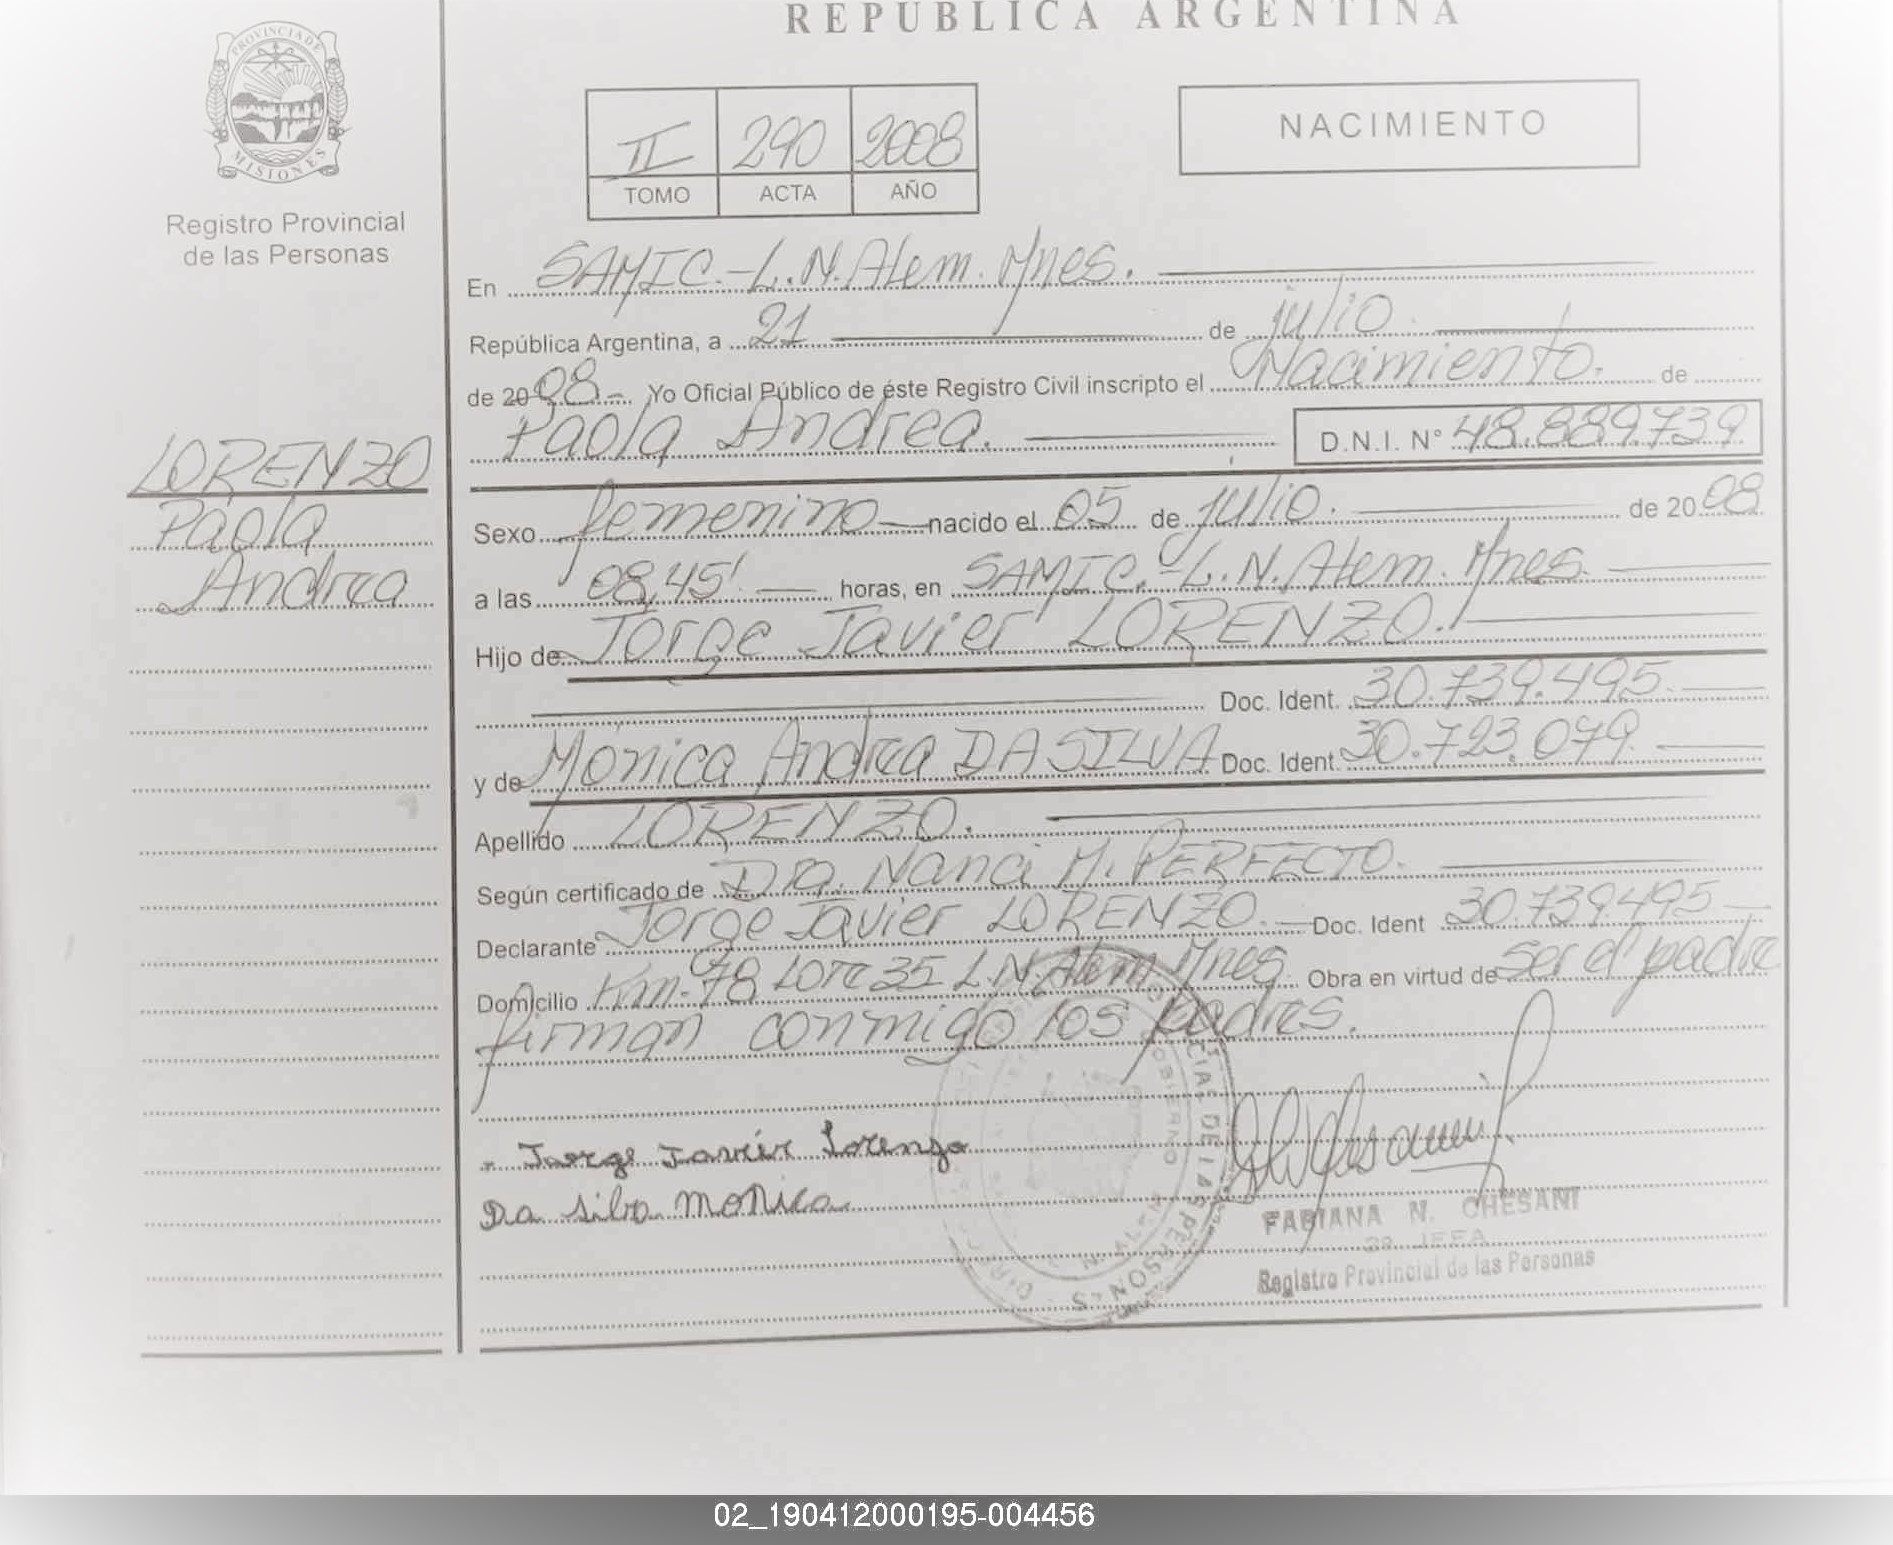 REPUBLICA ARGENTINA
PROVINCIA DE
MISIONES
Registro Provincial
de las Personas
II 290 2008
TOMO ACTA AÑO
NACIMIENTO
En SAMIC.-L.N.Alem. Mnes.
República Argentina, a 21 de julio
de 2008- Yo Oficial Público de éste Registro Civil inscripto el Nacimiento. de
Paola Andrea. D.N.I. N° 48.889.739
LORENZO
Paola
Andrea
Sexo femenino nacido el 05 de julio. de 2008
a las 08,45' horas, en SAMIC.-L.N.Alem. Mnes.
Hijo de Jorge Javier LORENZO.
Doc. Ident. 30.739.495.
y de Mónica Andrea DA SILVA Doc. Ident. 30.723.079.
Apellido LORENZO.
Según certificado de Dra. Nanci M. PERFECTO.
Declarante Jorge Javier LORENZO. Doc. Ident 30.739.495
Domicilio Km.78 Lote 35 L.N.Alem Mnes. Obra en virtud de ser el padre
firman conmigo los padres.
Jorge Javier Lorenzo
Da silva Monica
FABIANA N. CHESANI
JEFA
Registro Provincial de las Personas
02_190412000195-004456